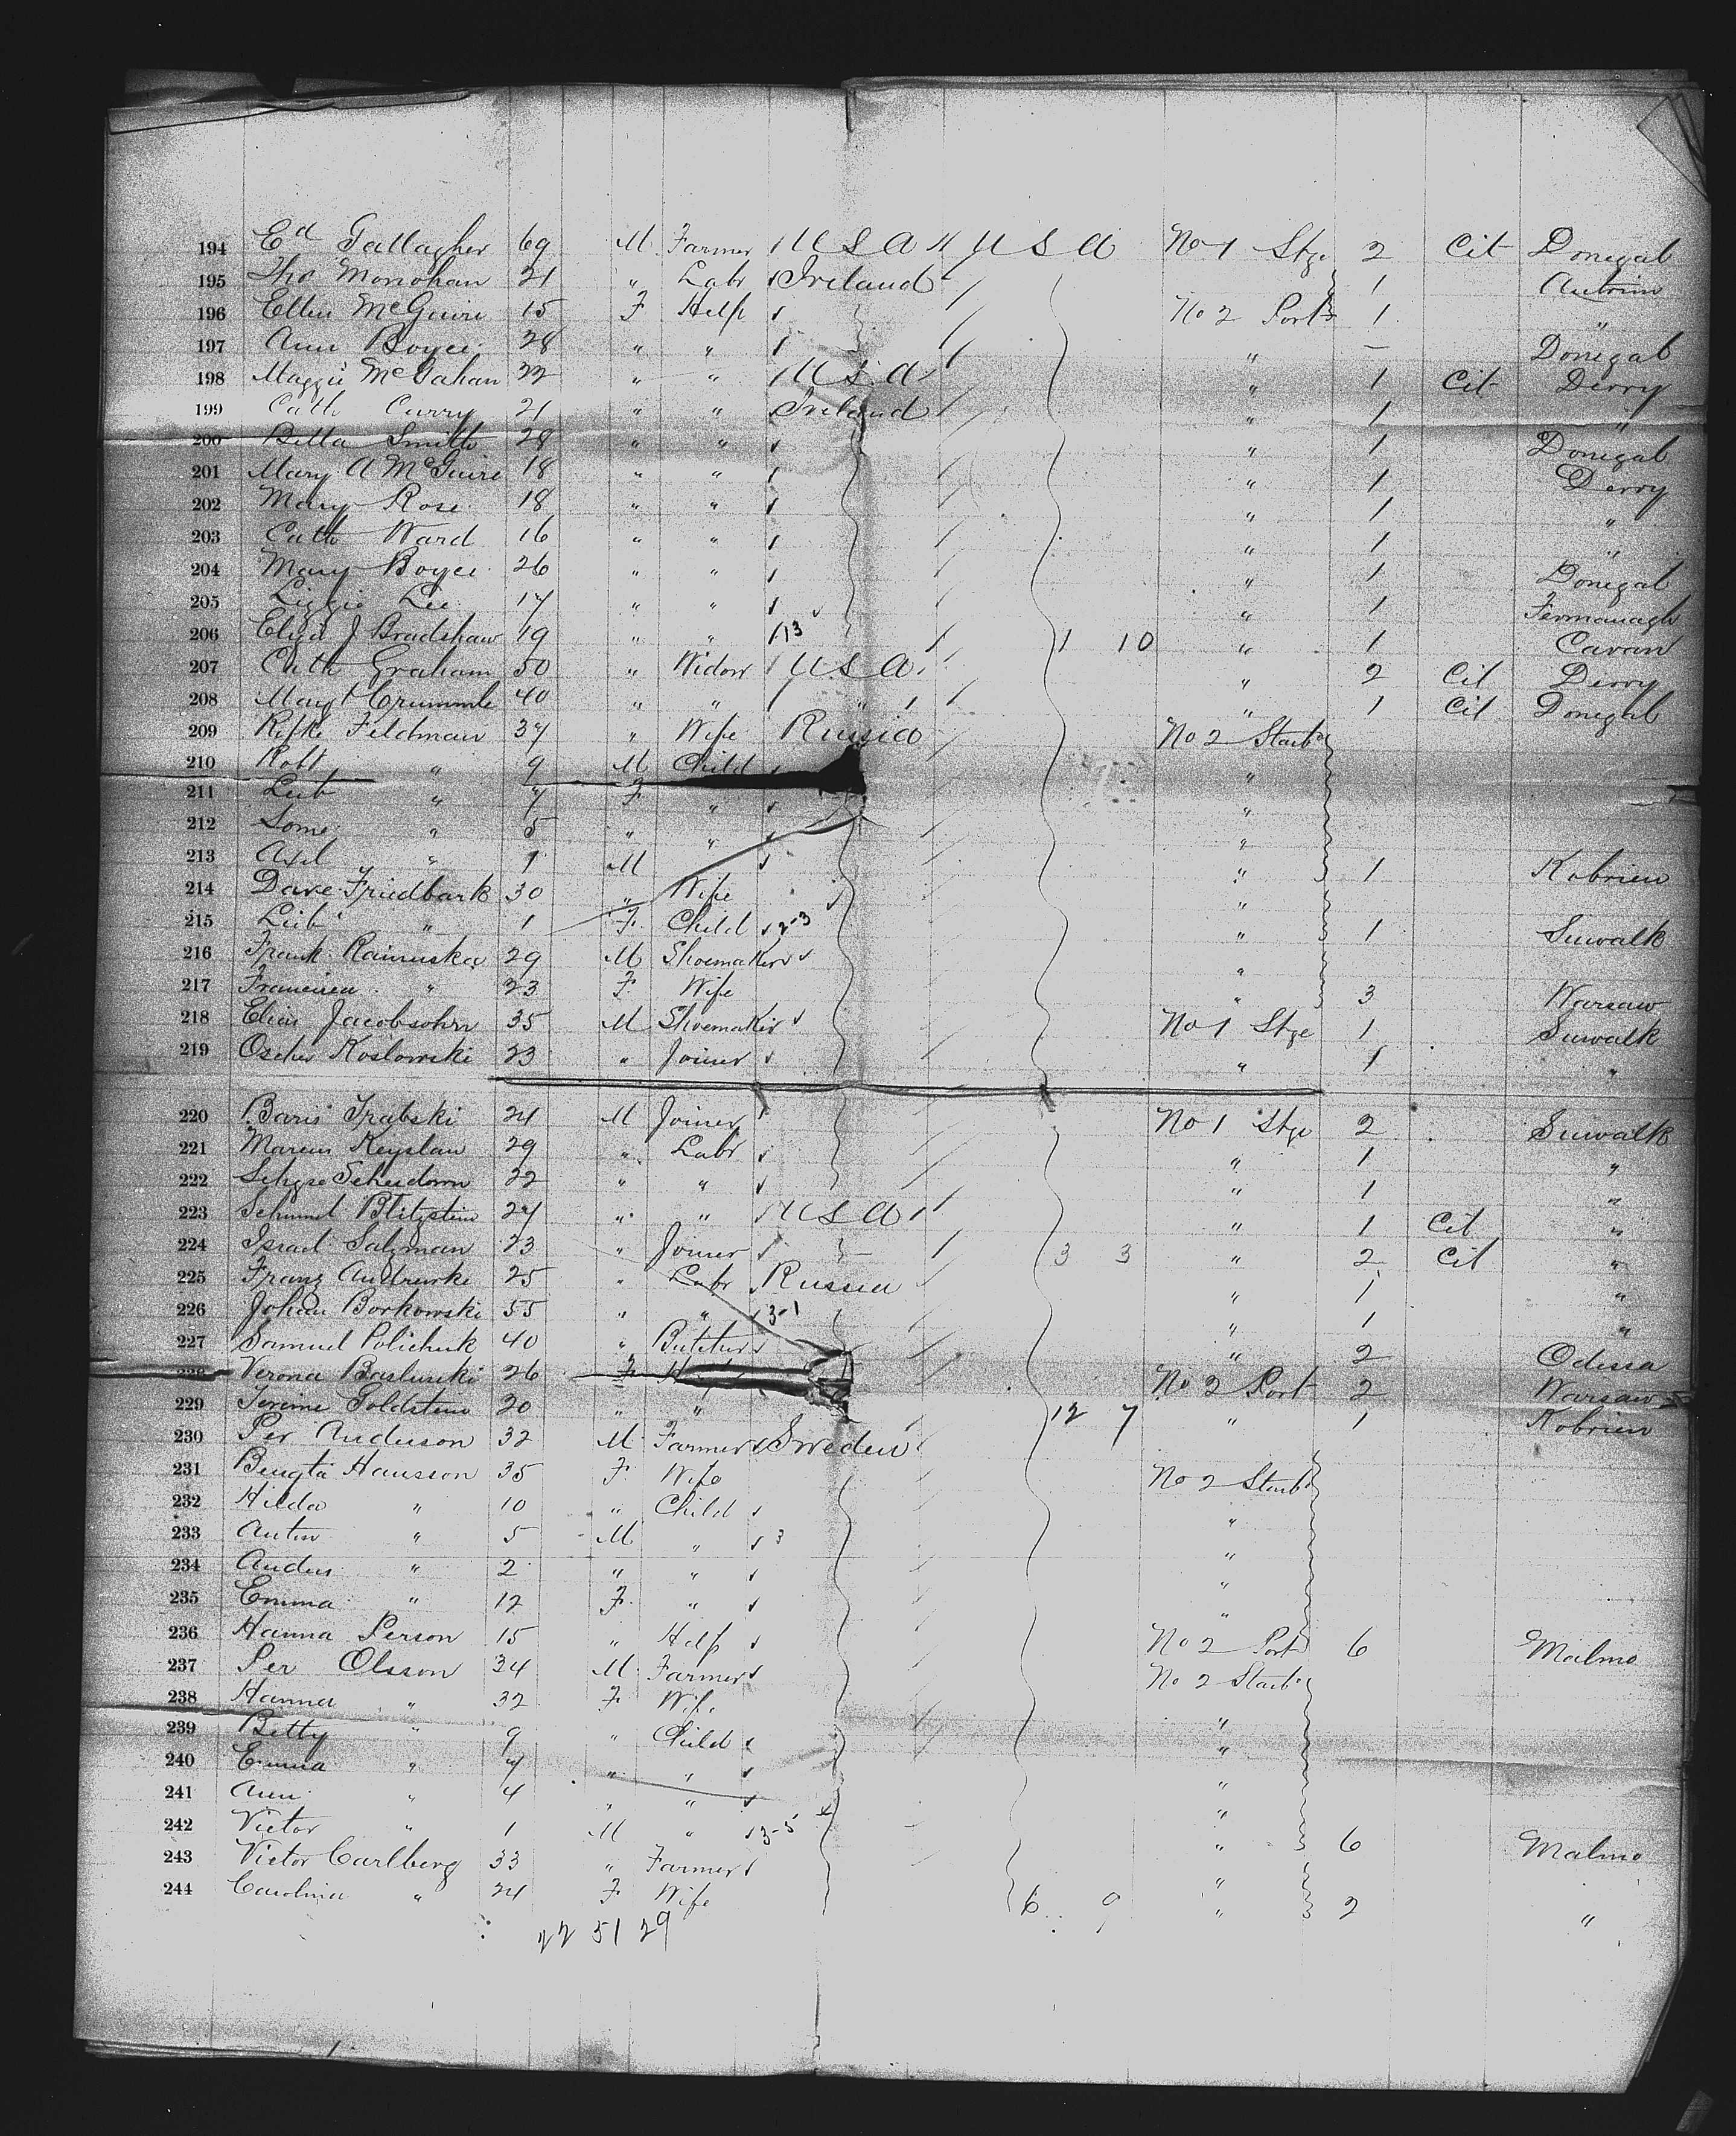 194 Ed Gallagher 69 M Farmer USA USA No 1 Stge 2 Cit Donegal
195 Tho Monohan 21 " Labr Ireland 1 Antrim
196 Ellen McGuire 15 F Help No 2 Port 1 "
197 Ann Boyce 28 " " " — Donegal
198 Maggie McGahan 22 " " USA " 1 Cit Derry
199 Cath Curry 21 " " Ireland " 1 "
200 Bella Smith 28 " " " 1 Donegal
201 Mary A McGuire 18 " " " 1 Derry
202 Mary Rose 18 " " " 1 "
203 Cath Ward 16 " " " 1 "
204 Mary Boyce 26 " " " 1 Donegal
205 Lizzie Lee 17 " " " 1 Fermanagh
206 Eliza J Bradshaw 19 " " 13 1 10 " 1 Cavan
207 Cath Graham 50 " Widow USA " 2 Cit Derry
208 Margt Crummle 40 " " " " 1 Cit Donegal
209 Rifke Feldman 37 " Wife Russia No 2 Starb
210 Robt " 9 M Child "
211 Leib " 7 F " "
212 Some " 5 " " "
213 Axel " 1 M " 1 Kobrien
214 Dave Friedbark 30 " Wife "
215 Leib " 1 F Child 2-3 " 1 Suwalk
216 Frank Rainuska 29 M Shoemaker "
217 " 23 F Wife " 3 Warsaw
218 Elias Jacobsohn 35 M Shoemaker No 1 Stge 1 Suwalk
219 Oscher Koslowski 23 " Joiner " 1 "
220 Baris Trabski 24 M Joiner No 1 Stge 2 Suwalk
221 Marcus Keyslan 29 " Labr " 1 "
222 22 " " " 1 "
223 Schmul Blitzstein 27 " " USA " 1 Cit "
224 Israel Salzman 23 " Joiner 3 3 " 2 Cit "
225 Franz Andrewske 25 " Labr Russia " 1 "
226 Johan Borkowski 55 " " 3-1 " 1 "
227 Samuel Polichuk 40 " Butcher " 2 Odessa
228 Verona Basluski 26 F No 2 Port 2 Warsaw
229 Goldstein 20 " " 12 7 " 1 Kobrien
230 Per Anderson 32 M Farmer Sweden
231 Bengta Hansson 35 F Wife No 2 Starb
232 Hilda " 10 " Child "
233 Anton " 5 M " 3 "
234 Anders " 2 " " "
235 Emma " 12 F " "
236 Hanna Person 15 " Help No 2 Port 6 Malmo
237 Per Olsson 34 M Farmer No 2 Starb
238 Hanna " 32 F Wife "
239 Betty " 9 " Child "
240 Emma " 7 " " "
241 Ann " 4 " " "
242 Victor " 1 M " 3-5 " 6 Malmo
243 Victor Carlberg 33 " Farmer "
244 Carolina " 24 F Wife 6 9 " 2 "
22 51 29